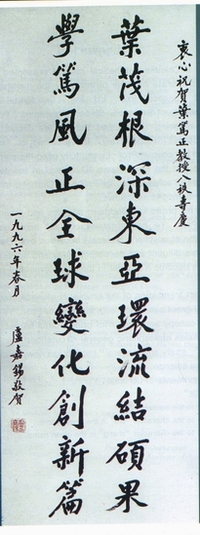 衷心祝贺葉篤正教授八秩壽慶
葉茂根深東亞環流結碩果
學篤風正全球變化創新篇
一九九六年春月
盧嘉錫敬賀